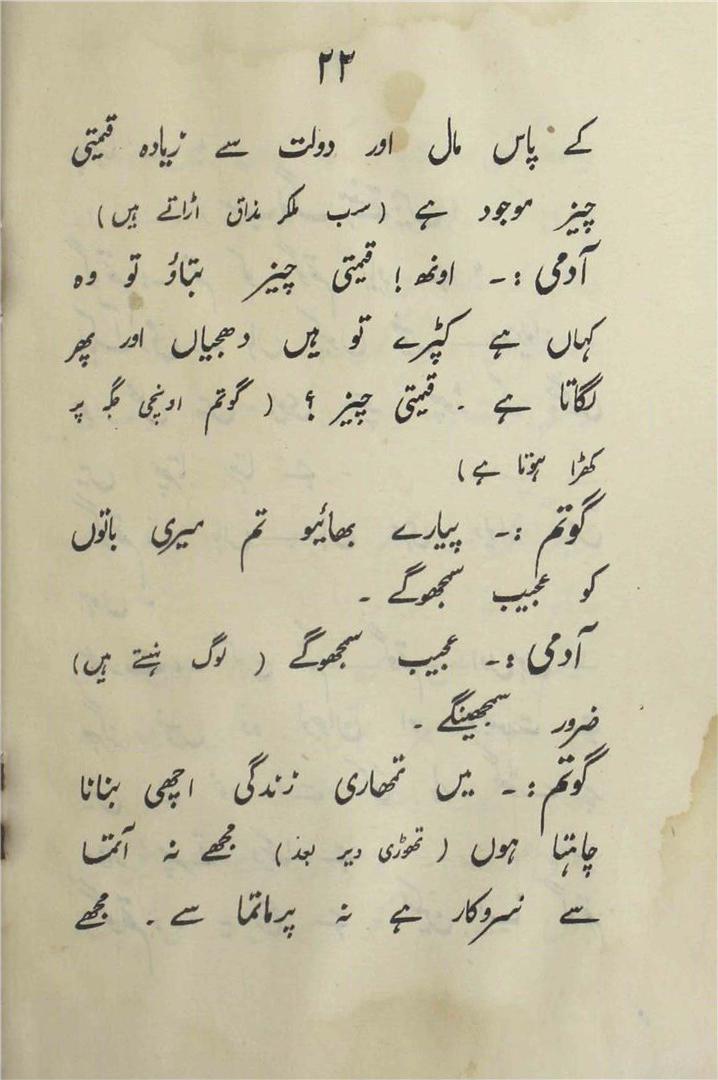 ۲۳
کے پاس مال اور دولت سے زیادہ قیمتی
چیز موجود ہے (سب ملکر مذاق اڑاتے ہیں)
آدمی :۔ اونھ! قیمتی چیز بتاؤ تو وہ
کہاں ہے کپڑے تو ہیں دھجیاں اور پھر
لگاتا ہے ۔ قیمتی چیز ؟ (گوتم اونچی جگہ پر
کھڑا ہوتا ہے)
گوتم :۔ پیارے بھائیو تم میری باتوں
کو عجیب سمجھوگے ۔
آدمی :۔ عجیب سمجھوگے (لوگ ہنستے ہیں)
ضرور سمجھینگے ۔
گوتم :۔ میں تمھاری زندگی اچھی بنانا
چاہتا ہوں (تھوڑی دیر بعد) مجھے نہ آتما
سے سروکار ہے نہ پرماتما سے ۔ مجھے